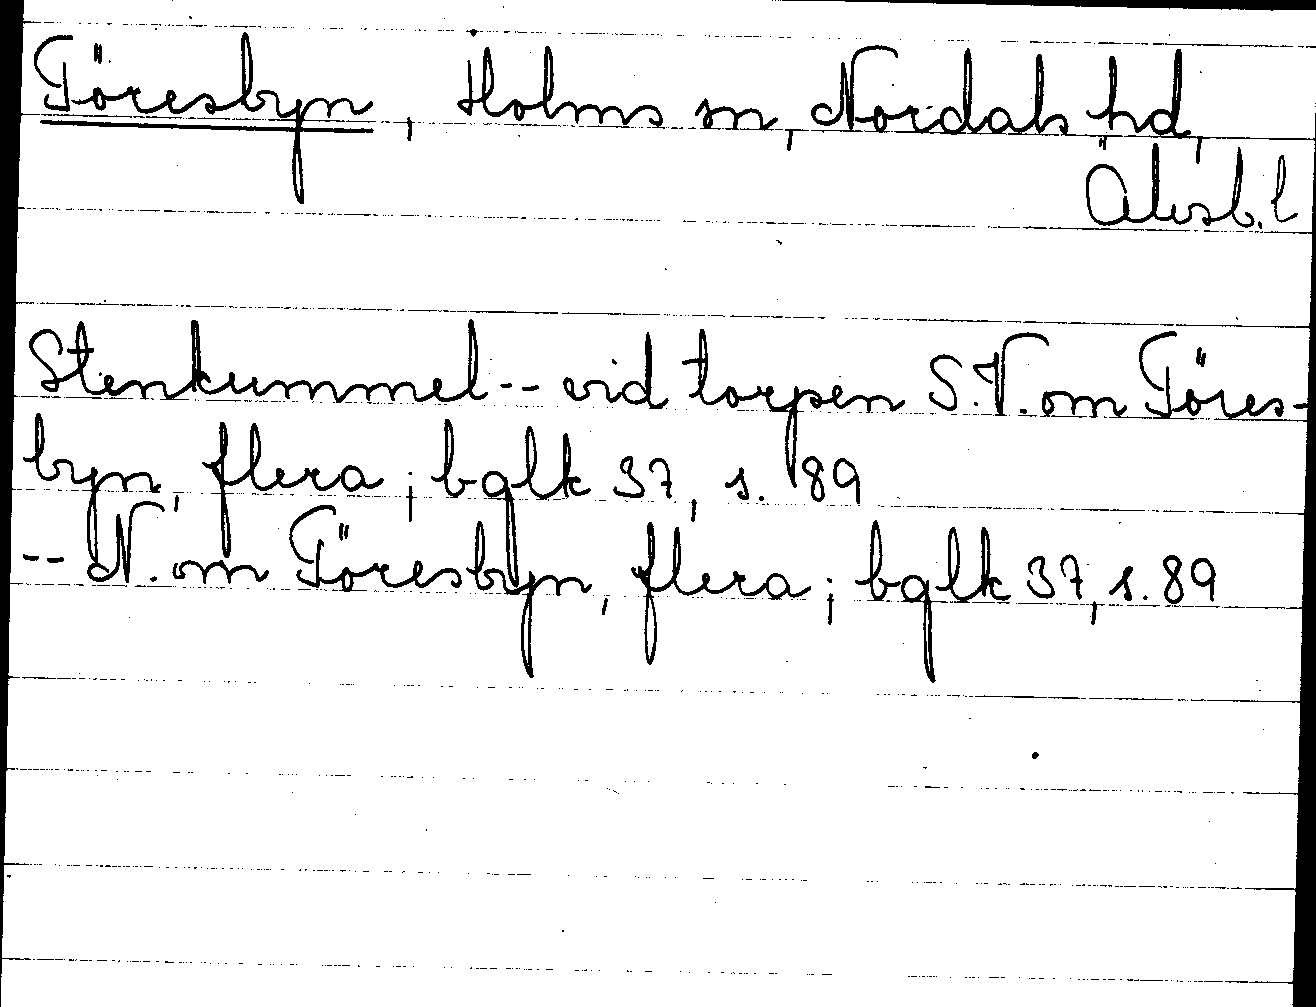 Töresbyn, Holms sn, Nordals hd,
Älvsb. l
Stenkummel -- vid torpen S.V. om Töres-
byn, flera; bglk 37, s. 89
-- N. om Töresbyn, flera; bglk 37, s. 89